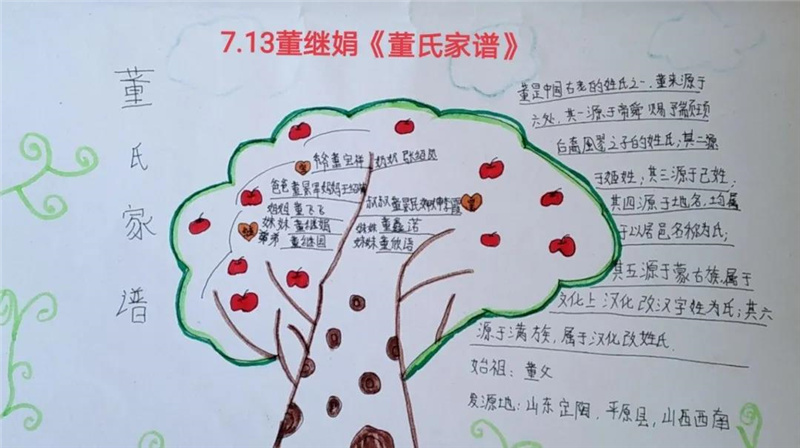 7.13董继娟《董氏家谱》
董氏家谱
董是中国古老的姓氏之一,董来源于
六处,其一源于帝舜赐予颛顼
后裔 之子的姓氏;其二源
于姬姓,其三源于己姓;
其四源于地名,均属
于以居邑名称为氏;
其五源于蒙古族,属于
文化上汉化改汉字姓为氏;其六
源于满族,属于汉化改姓氏.
始祖:董父
发源地:山东定陶.平原县,山西西南
爷爷董宝祥 奶奶张绍
爸爸董 妈妈王
叔叔董 霞
姐姐董飞飞
妹妹董继娟
弟弟董继国
妹妹董鑫诺
妹妹董欣语